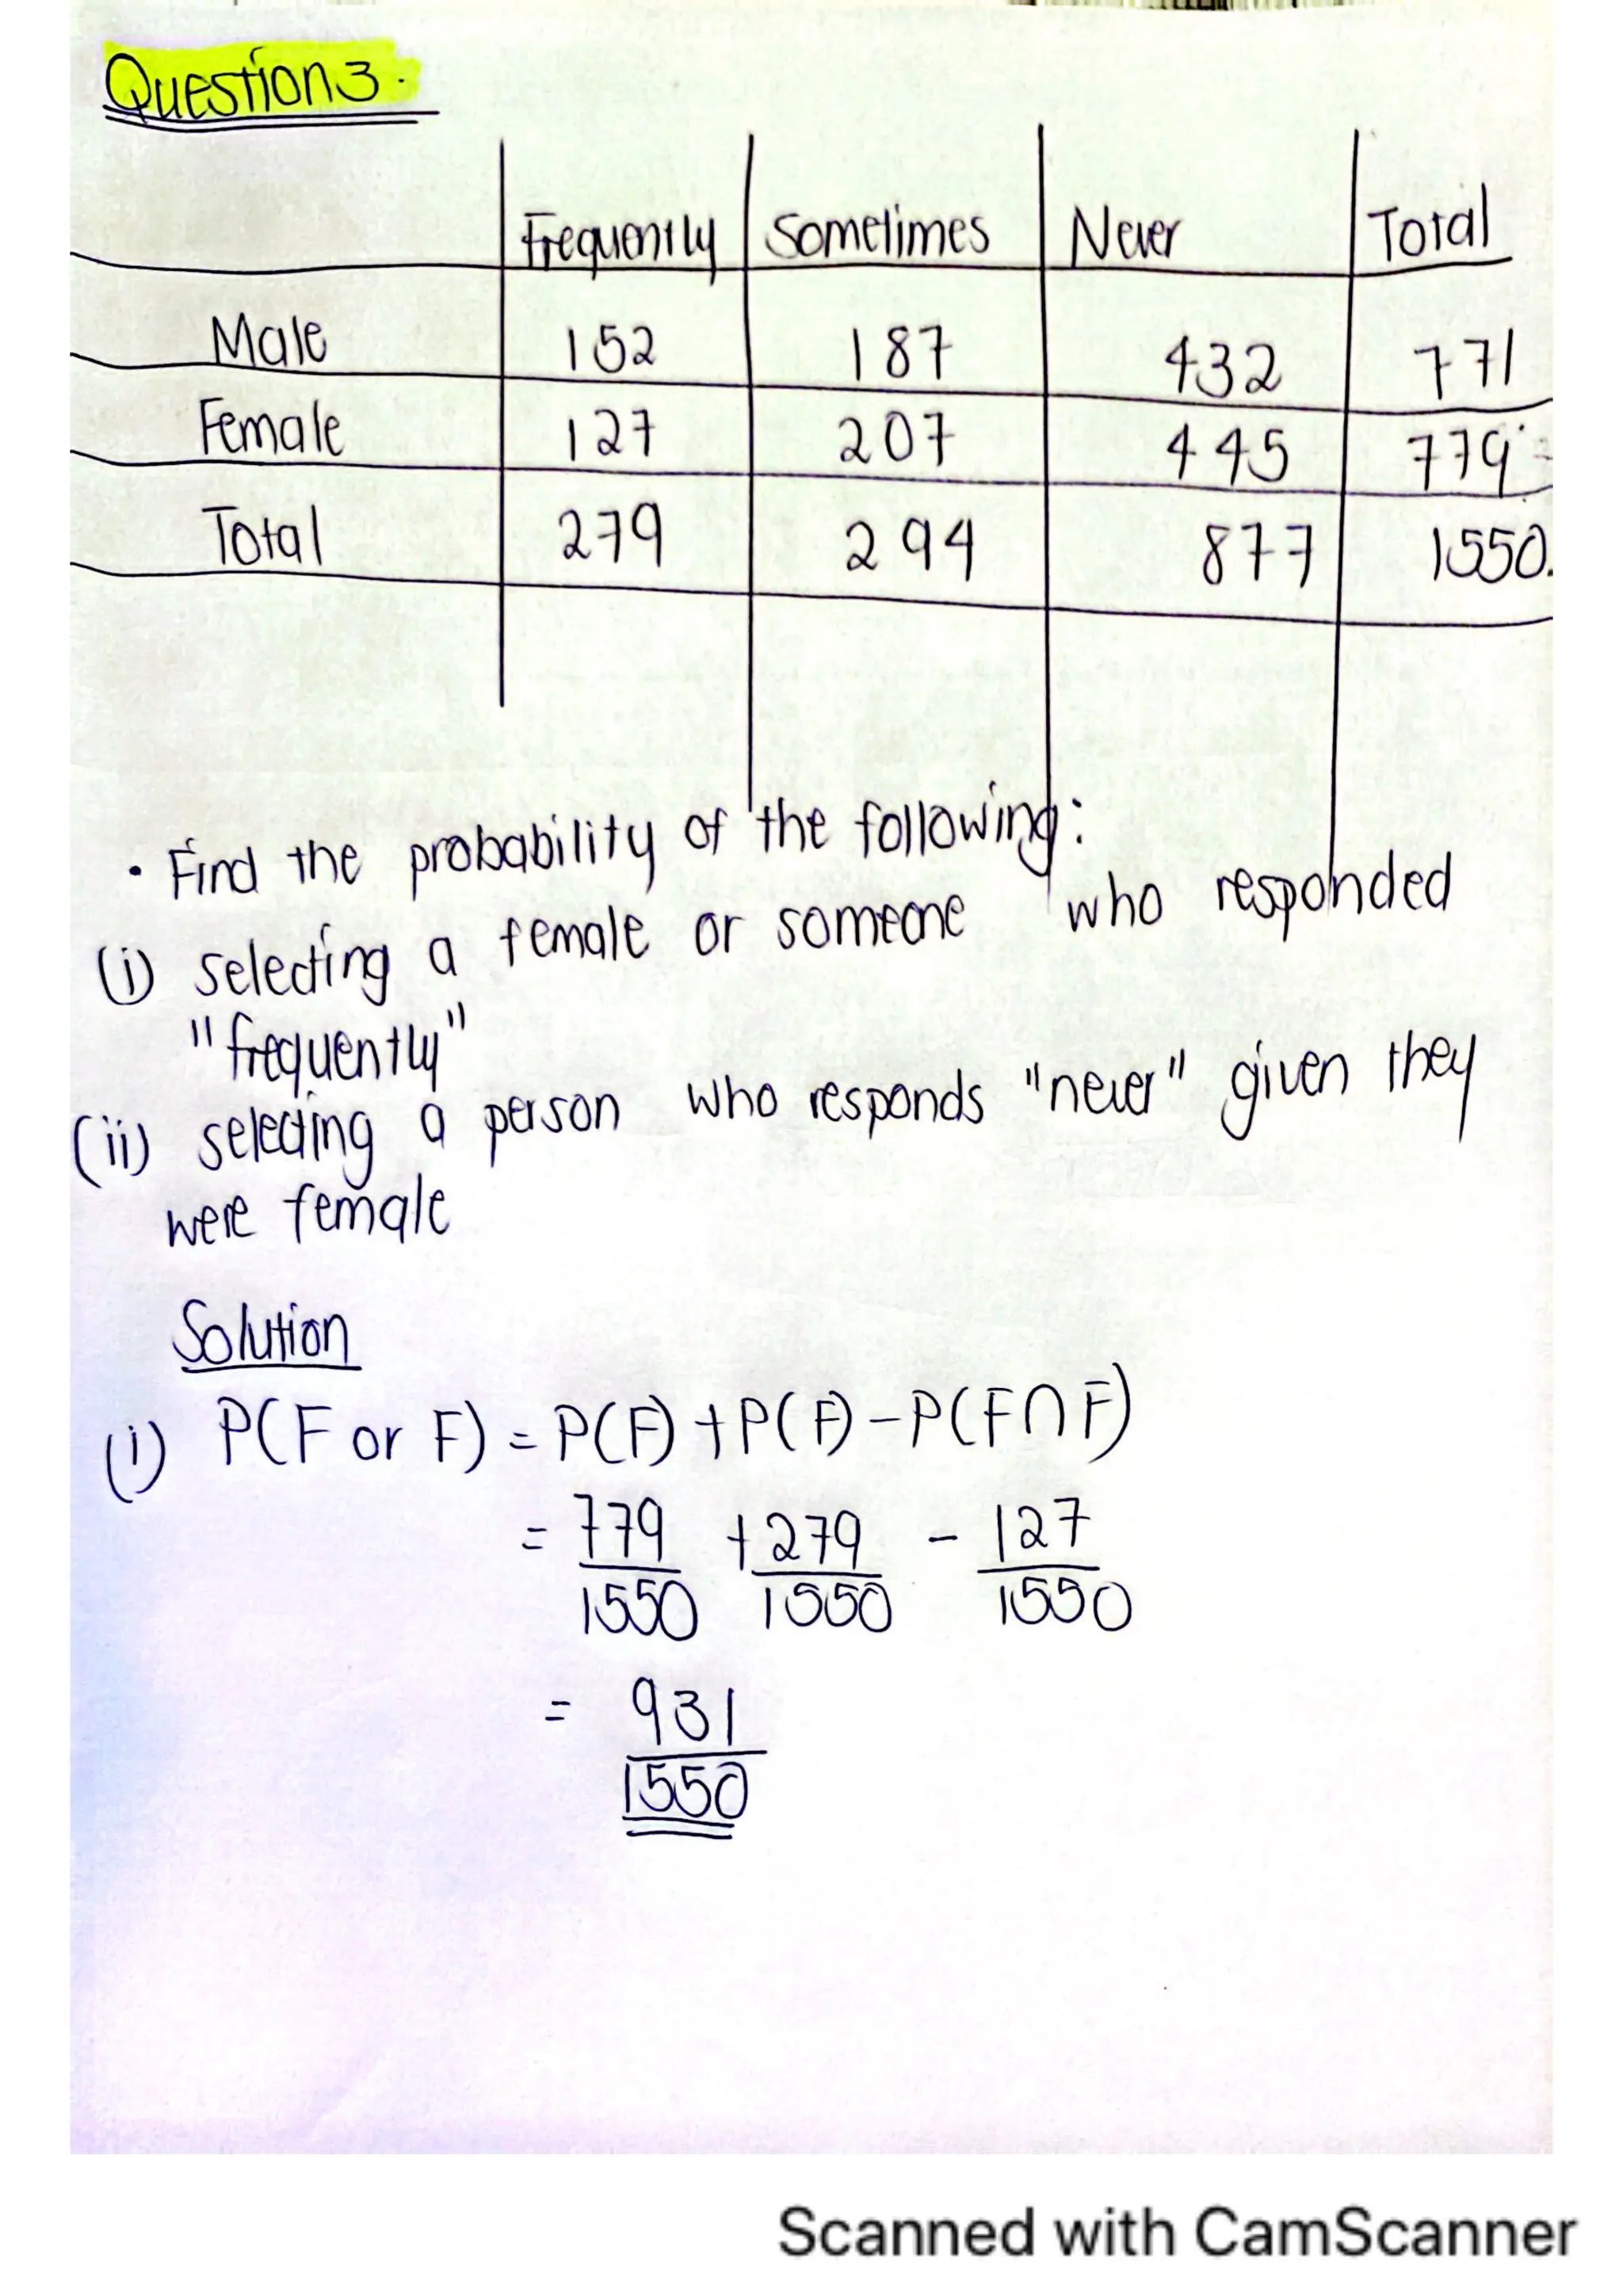 Question 3.
Frequently Sometimes Never Total
Male 152 187 432 771
Female 127 207 445 779
Total 279 294 877 1550.
• Find the probability of the following:
(i) selecting a female or someone who responded
"frequently"
(ii) selecting a person who responds "never" given they
were female
Solution
(i) P(F or F) = P(F) + P(F) - P(F∩F)
= 779/1550 + 279/1550 - 127/1550
= 931/1550
Scanned with CamScanner